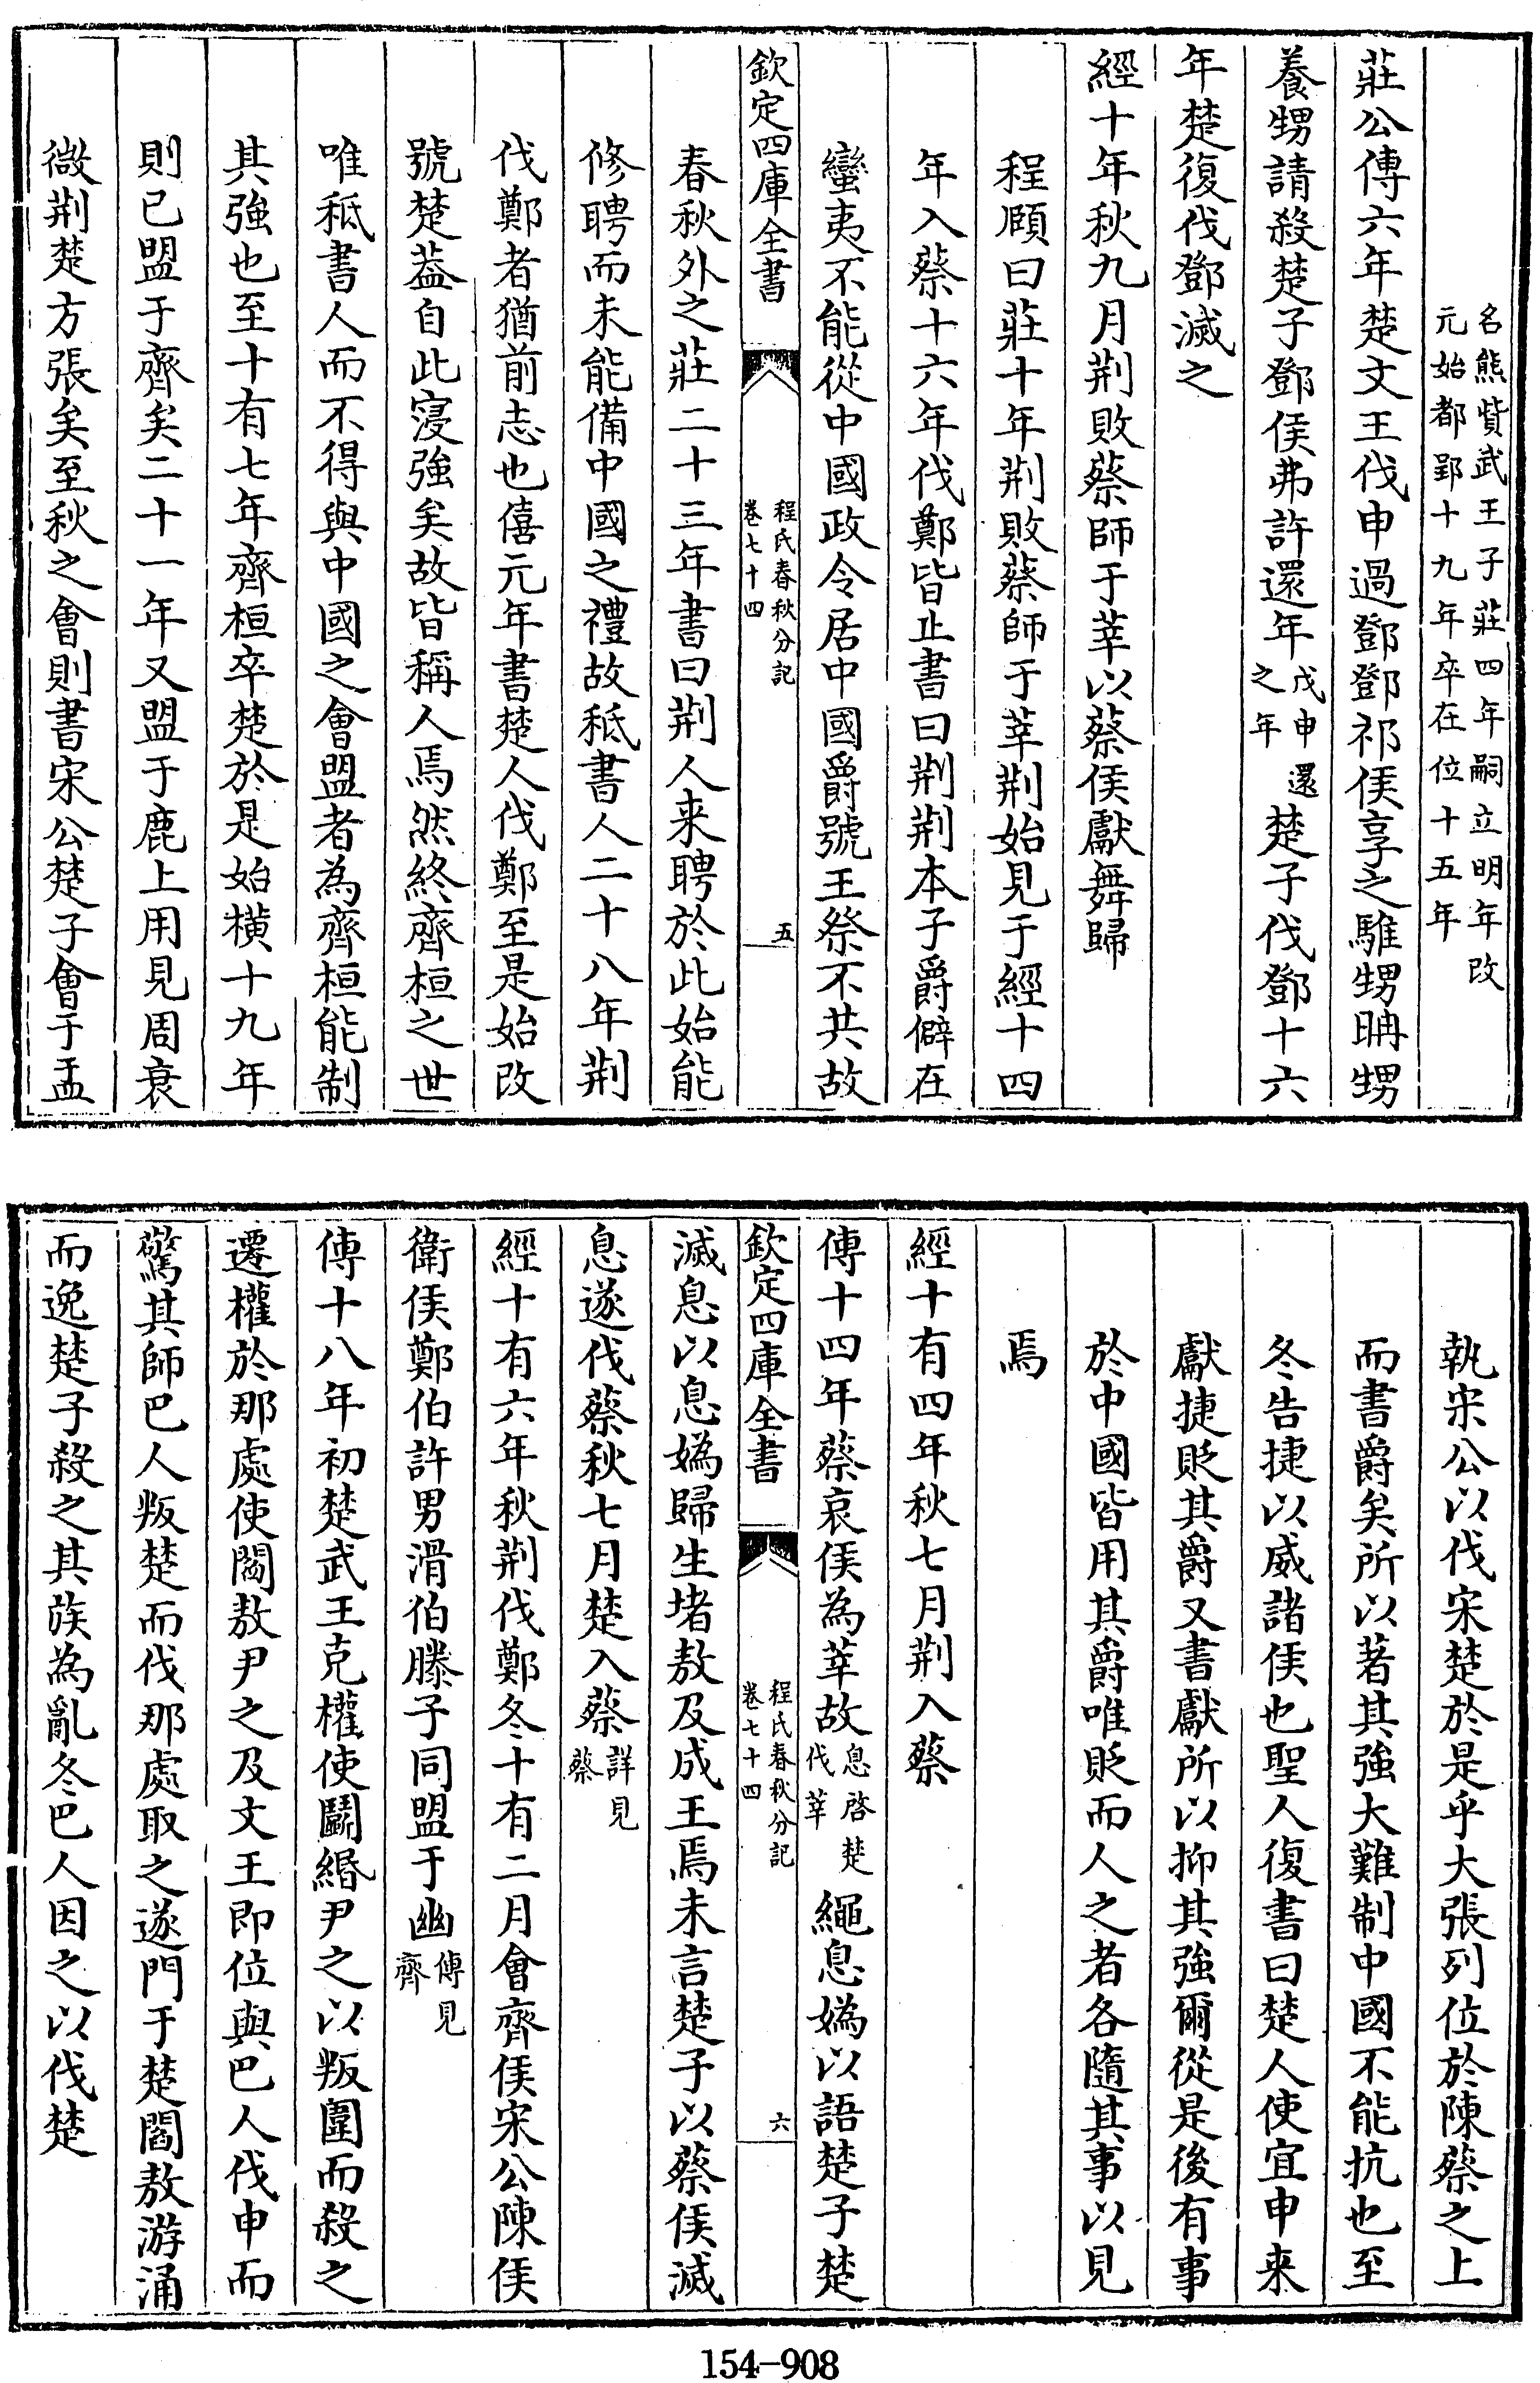 名熊貲武王子莊四年嗣立明年改
元始都郢十九年卒在位十五年
莊公傳六年楚文王伐申過鄧鄧祁侯享之騅甥聃甥
養甥請殺楚子鄧侯弗許還年
戊申還
之年
楚子伐鄧十六
年楚復伐鄧滅之
經十年秋九月荆敗蔡師于莘以蔡侯獻舞歸
程頤曰莊十年荆敗蔡師于莘荆始見于經十四
年入蔡十六年伐鄭皆止書曰荆荆本子爵僻在
蠻夷不能從中國政令居中國爵號王祭不共故
欽定四庫全書
程氏春秋分記
卷七十四
五
春秋外之莊二十三年書曰荆人来聘於此始能
修聘而未能備中國之禮故秪書人二十八年荆
伐鄭者猶前志也僖元年書楚人伐鄭至是始改
號楚葢自此寖強矣故皆稱人焉然終齊桓之世
唯秪書人而不得與中國之會盟者為齊桓能制
其強也至十有七年齊桓卒楚於是始横十九年
則已盟于齊矣二十一年又盟于鹿上用見周衰
微荆楚方張矣至秋之會則書宋公楚子會于盂
執宋公以伐宋楚於是乎大張列位於陳蔡之上
而書爵矣所以著其強大難制中國不能抗也至
冬告捷以威諸侯也聖人復書曰楚人使宜申来
獻捷貶其爵又書獻所以抑其強爾從是後有事
於中國皆用其爵唯貶而人之者各隨其事以見
焉
經十有四年秋七月荆入蔡
傳十四年蔡哀侯為莘故
息啓楚
伐莘
繩息媯以語楚子楚
欽定四庫全書
程氏春秋分記
卷七十四
六
滅息以息媯歸生堵敖及成王焉未言楚子以蔡侯滅
息遂伐蔡秋七月楚入蔡
詳見
蔡
經十有六年秋荆伐鄭冬十有二月會齊侯宋公陳侯
衛侯鄭伯許男滑伯滕子同盟于幽
傳見
齊
傳十八年初楚武王克權使鬬緡尹之以叛圍而殺之
遷權於那處使閻敖尹之及文王即位與巴人伐申而
驚其師巴人叛楚而伐那處取之遂門于楚閻敖游涌
而逸楚子殺之其族為亂冬巴人因之以伐楚
154-908